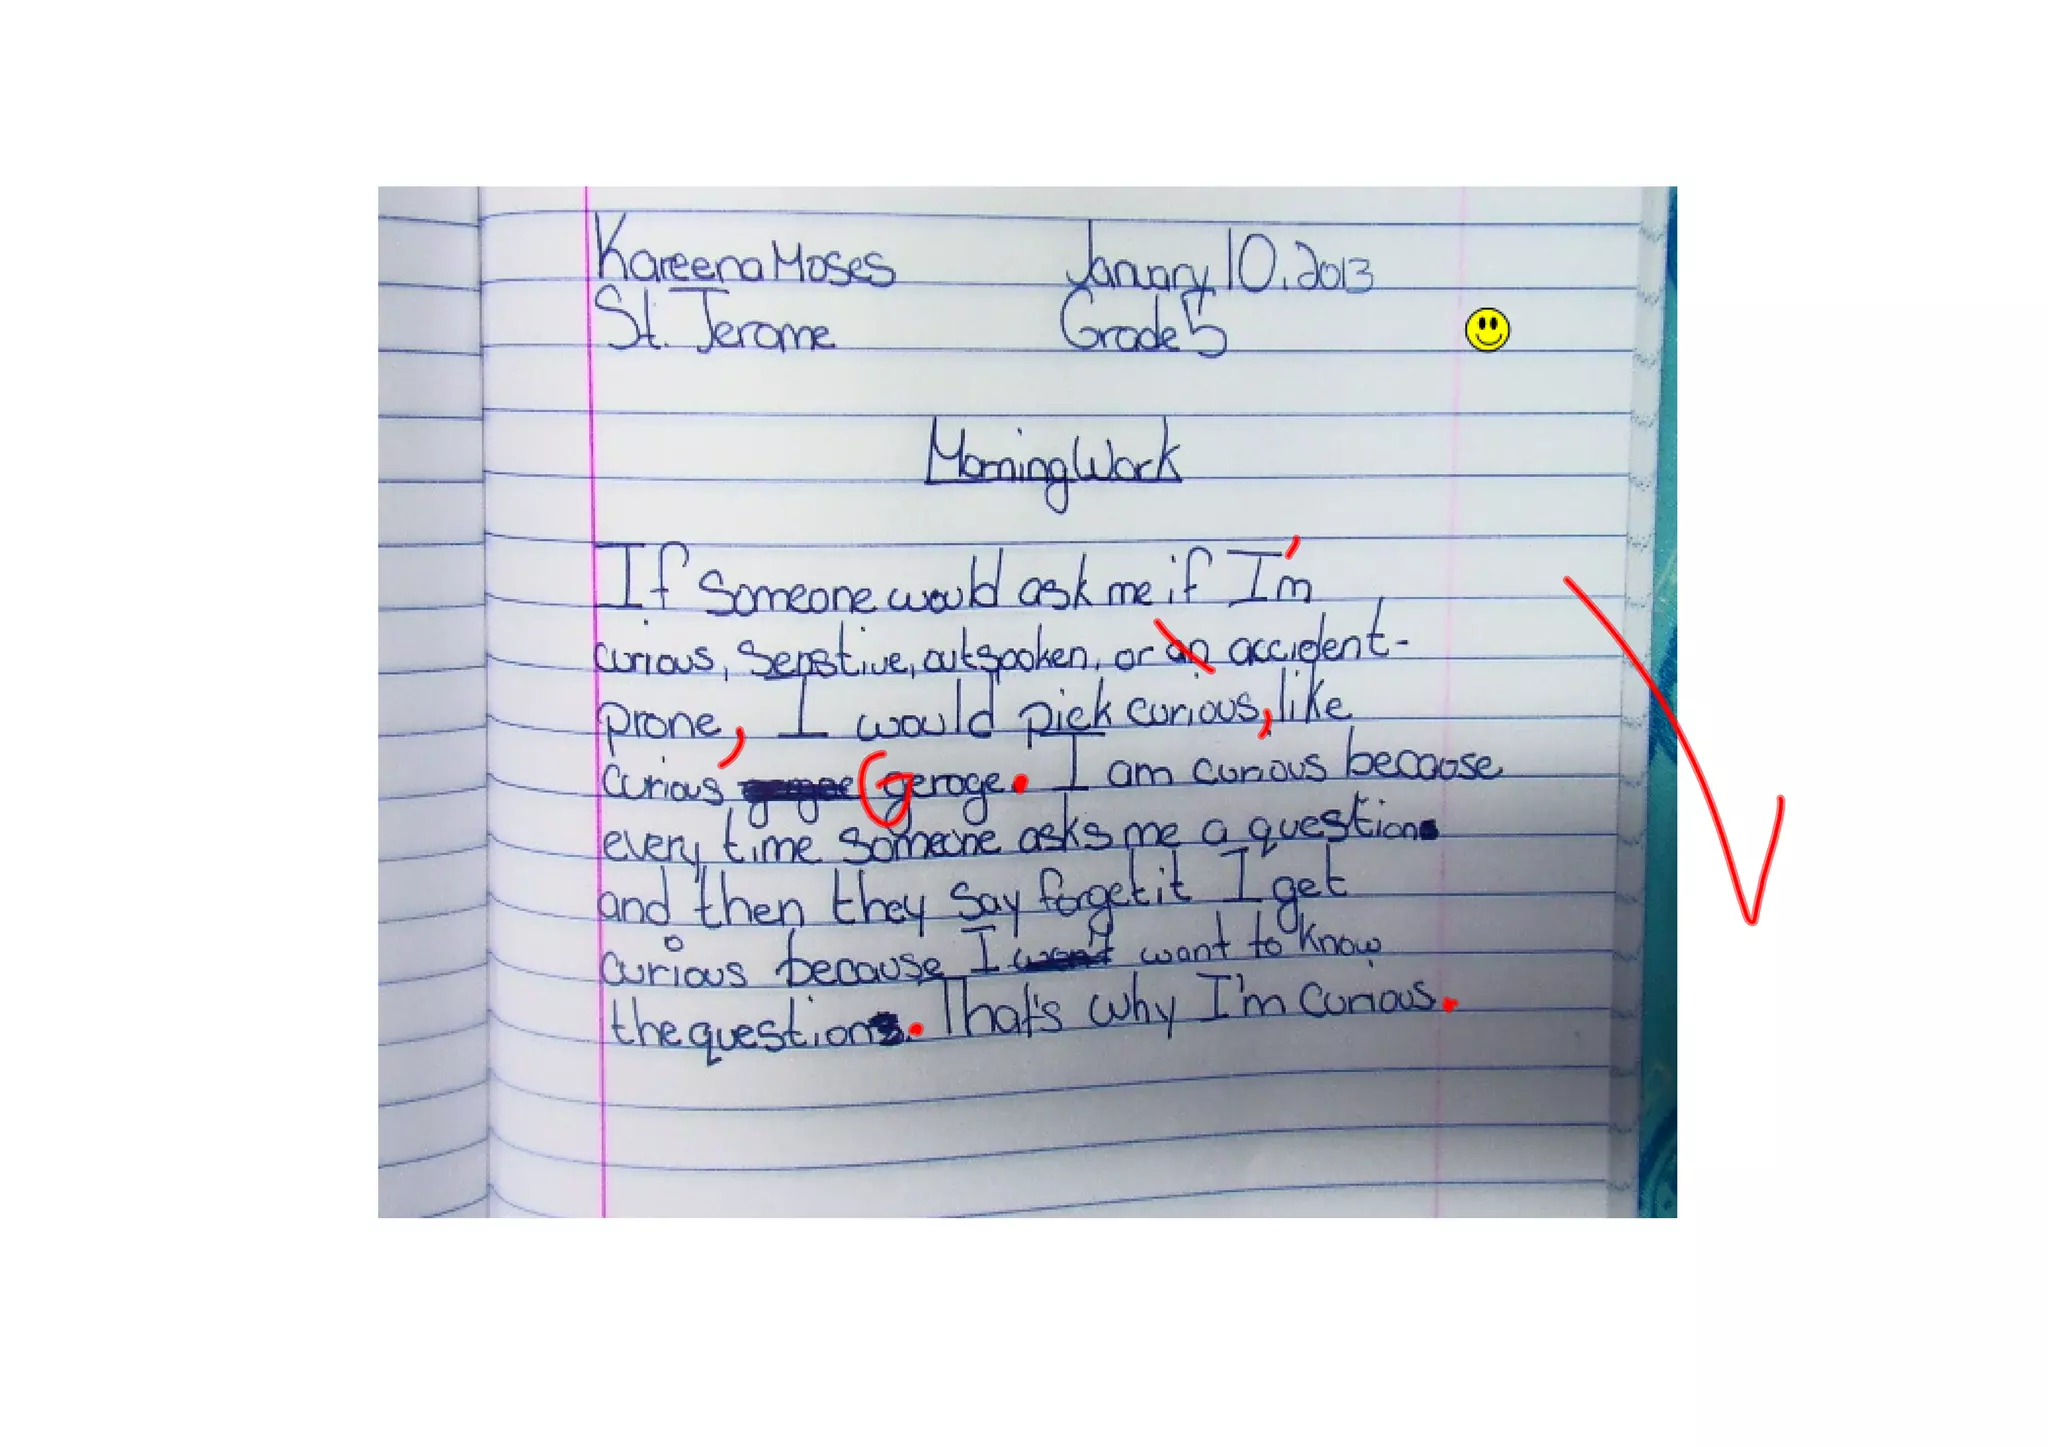 Kareena Moses January 10, 2013
St. Jerome Grade 5
Morning Work
If someone would ask me if I'm
curious, senstive, outspoken, or an accident-
prone, I would pick curious, like
curious Geroge. I am curious because
every time someone asks me a question
and then they say forget it I get
curious because I want to know
the question. That's why I'm curious.